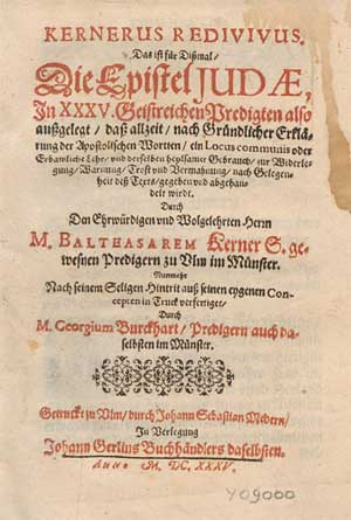 KERNERUS REDIVIVUS.
Das ist für Dißmal/
Die Epistel JUDÆ,
In XXXV. Geistreichen Predigten also
außgelegt / daß allzeit / nach Gründlicher Erklä-
rung der Apostolischen Wortten / ein Locus communis oder
Erbawliche Lehr/ vnd derselben heylsamer Gebrauch/ zur Widerle-
gung/ Warnung/ Trost vnd Vermahnung/ nach Gelegen-
heit deß Texts/ gegeben vnd abgehan-
delt wirdt.
Durch
Den Ehrwürdigen vnd Wolgelehrten Herrn
M. BALTHASAREM Kerner S. ge-
wesnen Predigern zu Vlm im Münster.
Nunmehr
Nach seinem Seligen Hintrit auß seinen eygenen Con-
cepten in Truck verfertiget/
Durch
M. Georgium Burckhart / Predigern auch da-
selbsten im Münster.
Getruckt zu Vlm/ durch Johann Sebastian Medern/
In Verlegung
Johann Gerlins Buchhändlers daselbsten.
Anno M. DC. XXXV.
Y09000